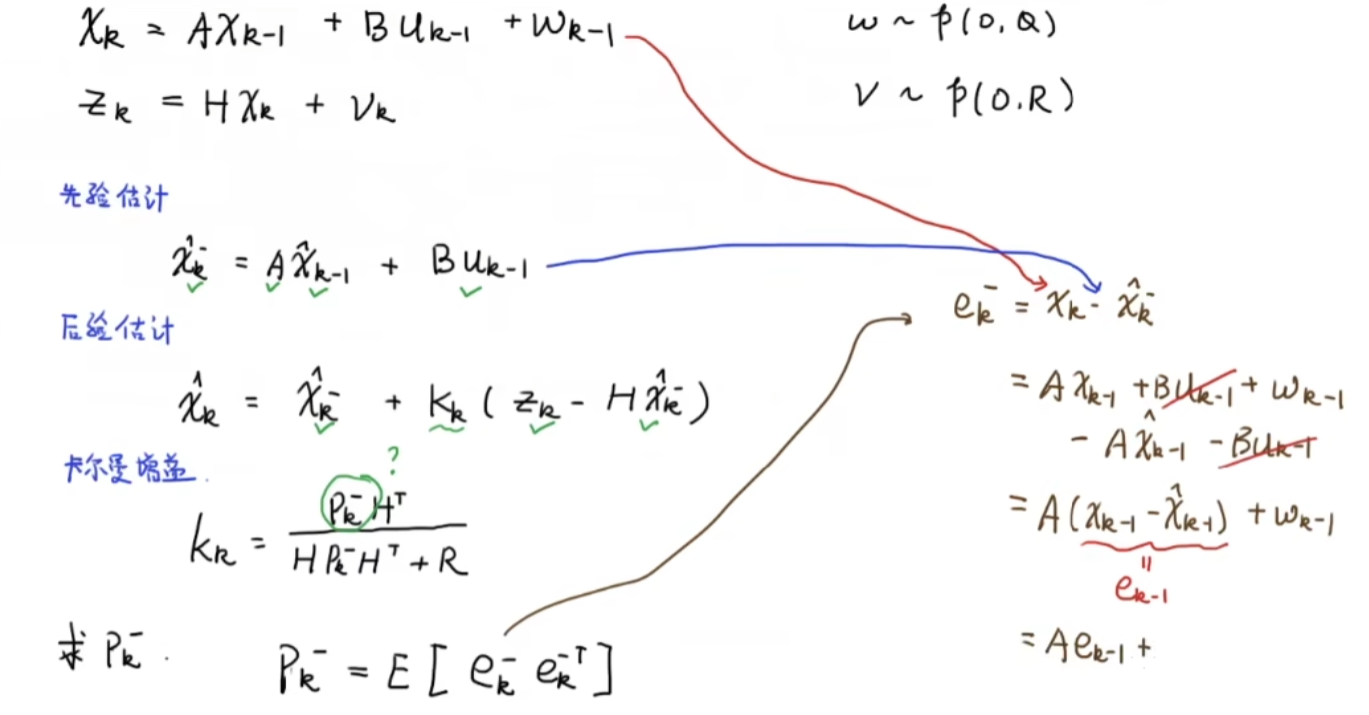 x_k = Ax_{k-1} + Bu_{k-1} + w_{k-1}
w ~ p(0, Q)
z_k = Hx_k + v_k
v ~ p(0.R)
先验估计
x̂_k^- = Ax̂_{k-1} + Bu_{k-1}
后验估计
x̂_k = x̂_k^- + K_k ( z_k - Hx̂_k^- )
卡尔曼增益.
?
k_k = \frac{P_k^- H^T}{H P_k^- H^T + R}
求 P_k^- .
P_k^- = E [ e_k^- e_k^{-T} ]
e_k^- = x_k - x̂_k^-
= Ax_{k-1} + Bu_{k-1} + w_{k-1}
- Ax̂_{k-1} - Bu_{k-1}
= A(x_{k-1} - x̂_{k-1}) + w_{k-1}
=
e_{k-1}
= Ae_{k-1} +